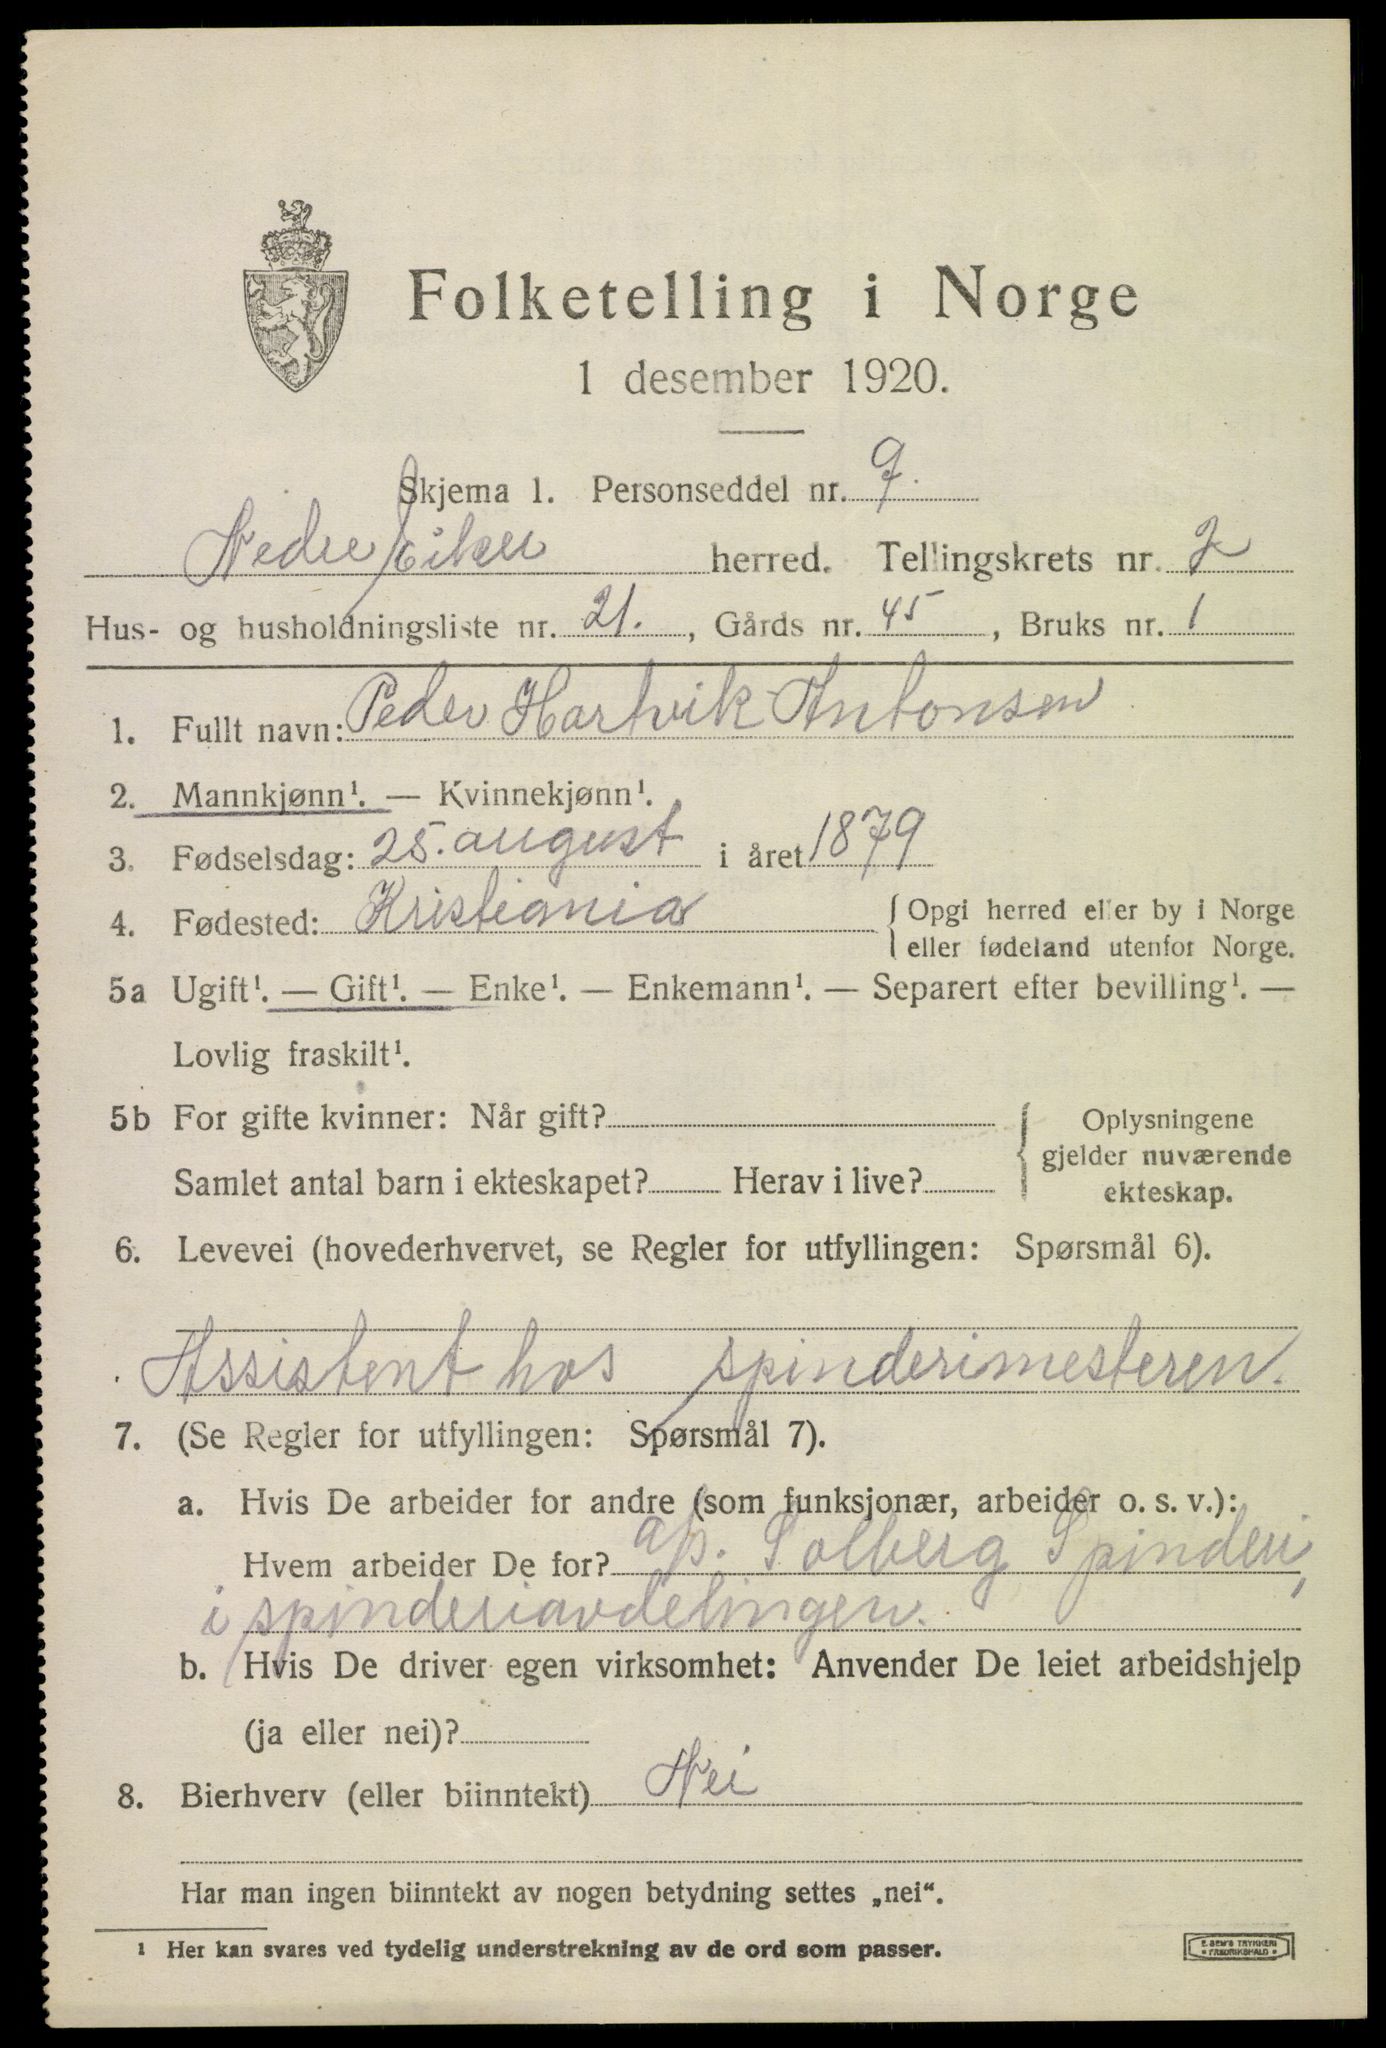 Folketelling i Norge
1 desember 1920.
Skjema 1. Personseddel nr. 9.
Nedre Eiker herred. Tellingskrets nr. 2
Hus- og husholdningsliste nr. 21., Gårds nr. 45, Bruks nr. 1
1. Fullt navn: Peder Hartvik Antonsen
2. Mannkjønn¹. — Kvinnekjønn¹.
3. Fødselsdag: 25. august i året 1879
4. Fødested: Kristiania { Opgi herred eller by i Norge
eller fødeland utenfor Norge.
5a Ugift¹. — Gift¹. — Enke¹. — Enkemann¹. — Separert efter bevilling¹. —
Lovlig fraskilt¹.
5b For gifte kvinner: Når gift? { Oplysningene
gjelder nuværende
Samlet antal barn i ekteskapet? Herav i live? ekteskap.
6. Levevei (hovederhvervet, se Regler for utfyllingen: Spørsmål 6).
Assistent hos spinderimesteren.
7. (Se Regler for utfyllingen: Spørsmål 7).
a. Hvis De arbeider for andre (som funksjonær, arbeider o. s. v.):
Hvem arbeider De for? a/s. Solberg Spinderi,
i spinderiavdelingen.
b. Hvis De driver egen virksomhet: Anvender De leiet arbeidshjelp
(ja eller nei)?
8. Bierhverv (eller biinntekt) Nei
Har man ingen biinntekt av nogen betydning settes „nei“.
¹ Her kan svares ved tydelig understrekning av de ord som passer.
E. SEM'S TRYKKERI
• FREDRIKSHALD •